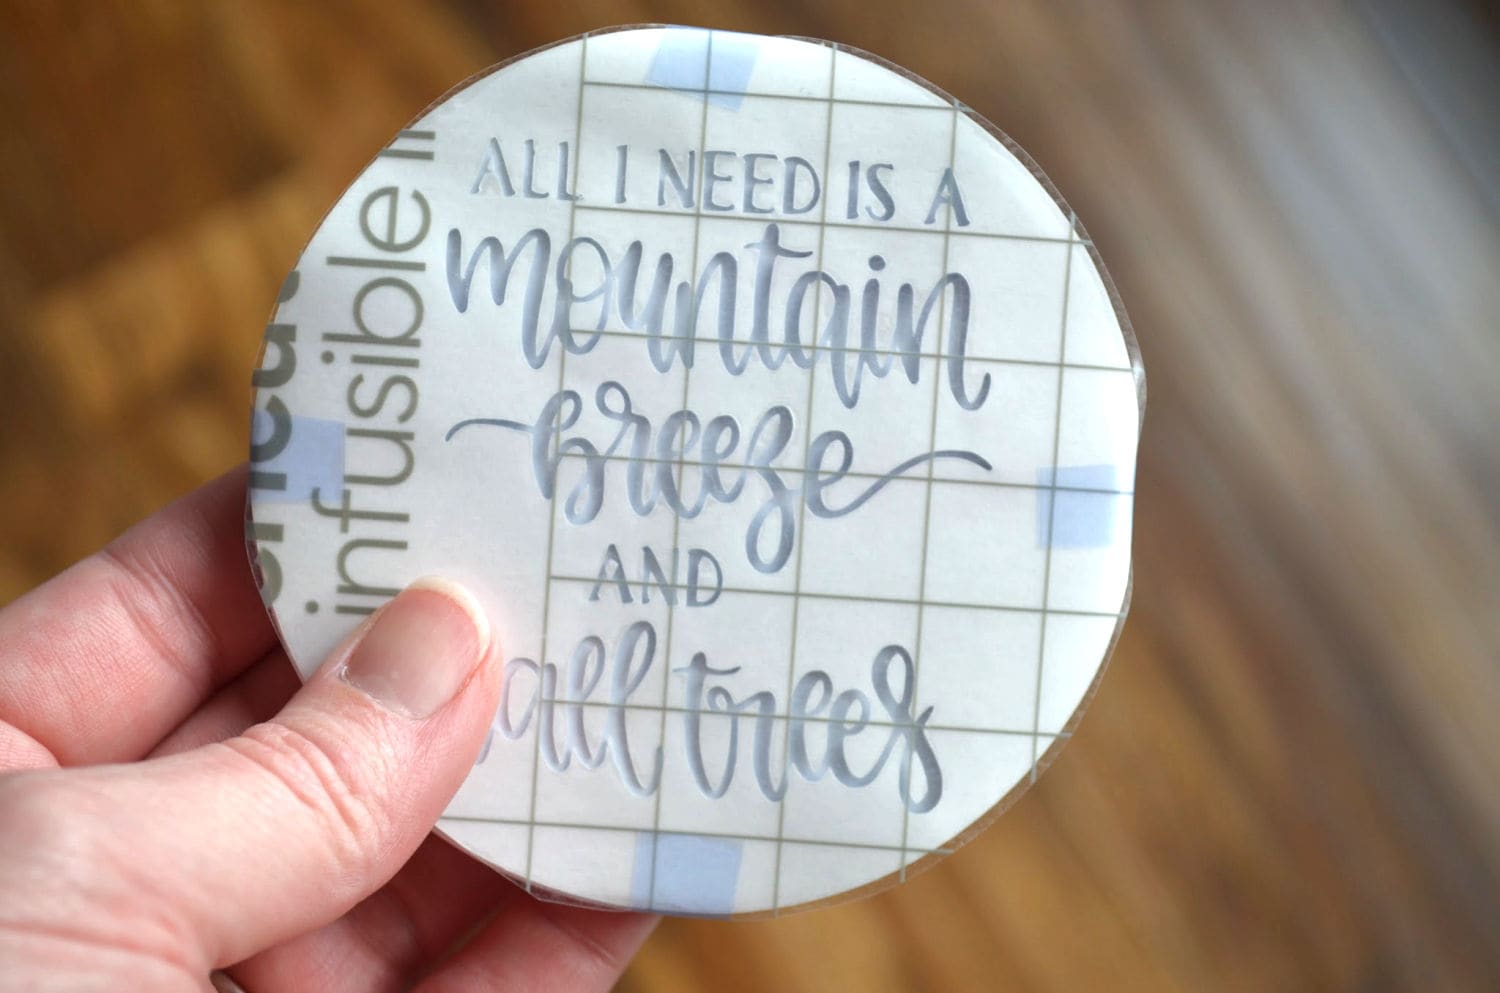 ALL I NEED IS A
mountain
breeze
AND
tall trees
infusible